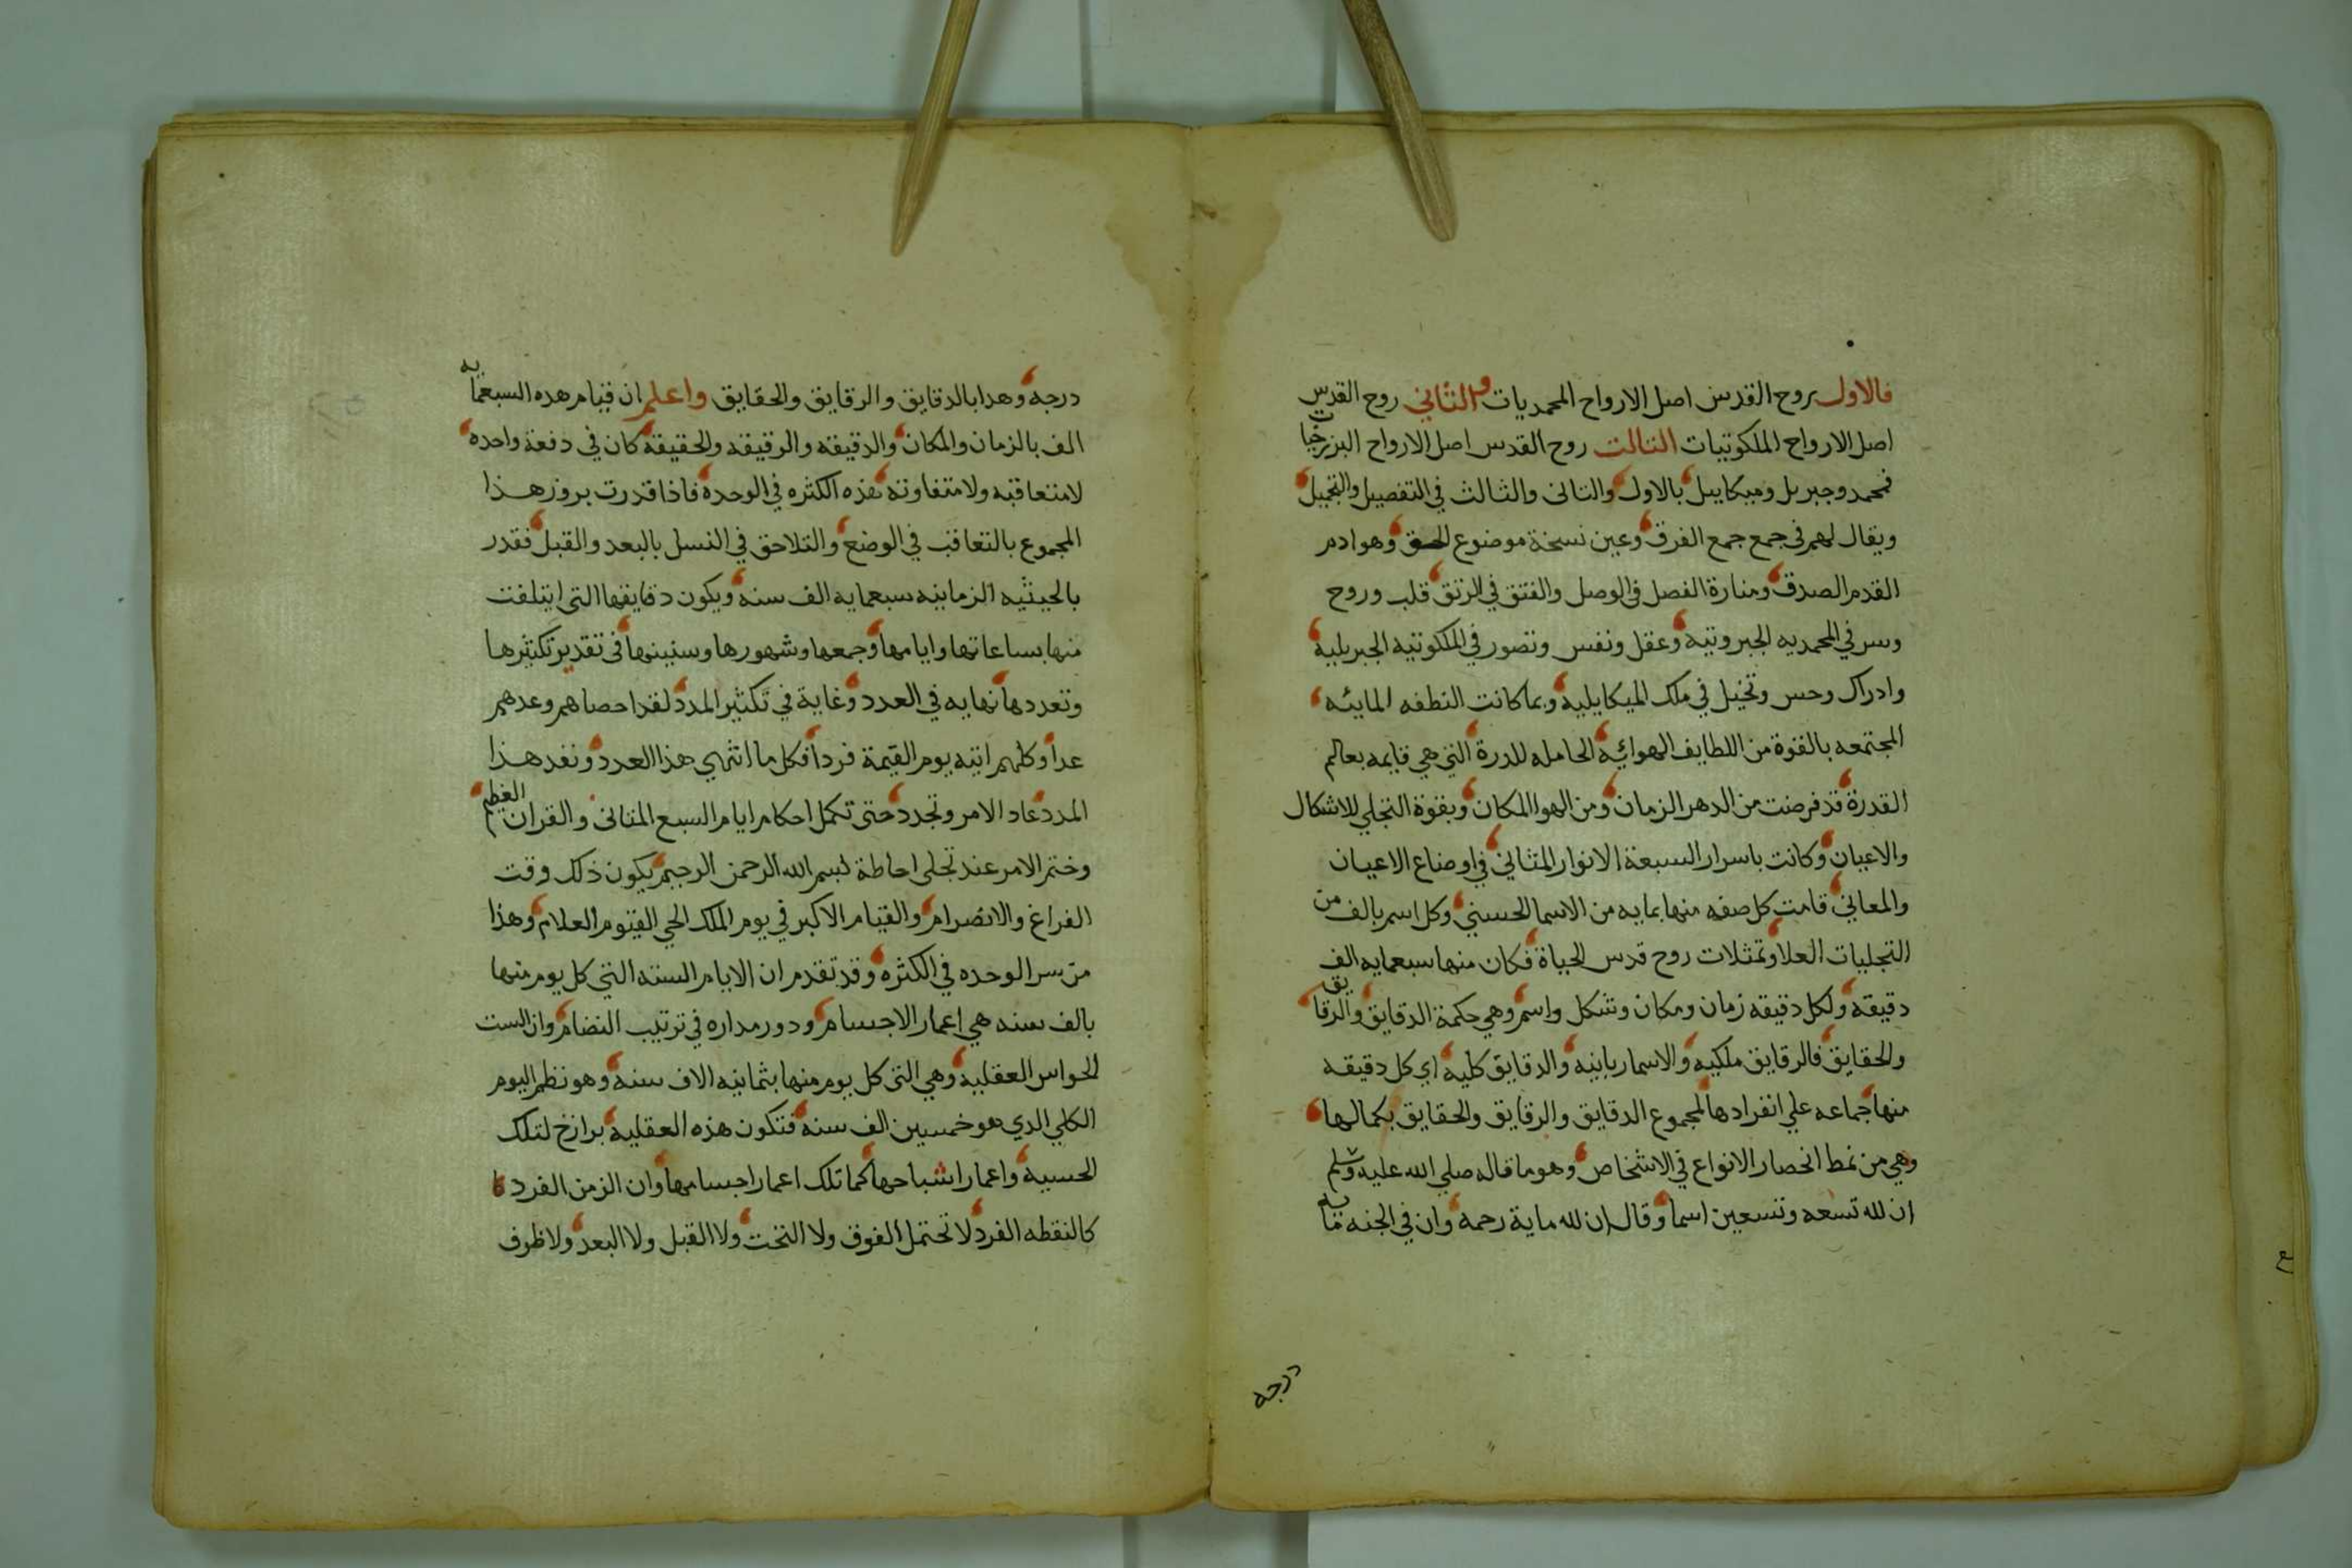 فالاول بروح القدس اصل الارواح المحمديات والثاني روح القدس
اصل الارواح الملكوتيات الثالث روح القدس اصل الارواح البرزخيات
فمحمد وجبريل وميكاييل بالاول والثانى والثالث في التفصيل والتجميل
ويقال لهم فى جمع جمع الفرق وعين نسخة موضوع الحق وهو ادم
القدم الصدق ومنارة الفصل فى الوصل والفتق في الرتق قلب وروح
وسر في المحمديه الجبروتيه وعقل ونفس وتصور في الملكوتيه الجبريلية
وادراك وحس وتخيل في ملك الميكايليه وبما كانت النطفه المائيه
المجتمعه بالقوة من اللطايف الهوائيه الحامله للدرة التي هي قايمه بعالم
القدرة قد فرضت من الدهر الزمان ومن الهوا المكان وبقوة التجلي للاشكال
والاعيان وكانت باسرار السبعة الانوار المثاني في اوضاع الاعيان
والمعاني قامت كل صفه منها بمايه من الاسما الحسنى وكل اسم بالف من
التجليات العلا وتمثلات روح قدس الحياة فكان منها سبعمايه الف
دقيقه ولكل دقيقه زمان ومكان وشكل واسم وهي حكمة الدقايق والرقايق
والحقايق فالرقايق ملكيه والاسما ربانيه والدقايق كليه اي كل دقيقه
منها جماعه علي انفرادها لمجموع الدقايق والرقايق والحقايق بكمالها
وهي من نمط انحصار الانواع في الاشخاص وهو ما قاله صلي الله عليه وسلم
ان لله تسعه وتسعين اسما وقال ان لله ماية رحمه وان في الجنه مايه
درجه
درجه وهدا بالدقايق والرقايق والحقايق واعلم ان قيام هده السبعمايه
الف بالزمان والمكان والدقيقه والرقيقه والحقيقة كان في دفعة واحده
لا متعاقبه ولا متفاوته هذه الكثره في الوحدة فاذا قدرت بروز هذا
المجموع بالتعاقب في الوضع والتلاحق في النسل بالبعد والقبل فقدر
بالحيثيه الزمانيه سبعمايه الف سنه ويكون دقايقها التى ايتلفت
منها بساعاتها وايامها وجمعها وشهورها وسنينها فى تقدير تكثيرها
وتعددها نهايه في العدد وغاية في تكثير المدد لقد احصاهم وعدهم
عدا وكلهم اتيه يوم القيمة فردا فكل ما انتهي هذا العدد ونفد هذا
المدد عاد الامر وتجدد حتى تكمل احكام ايام السبع المثانى والقران العظيم
وختم الامر عند تجلى احاطة بسم الله الرحمن الرحيم يكون ذلك وقت
الفراغ والانصرام والقيام الاكبر في يوم الملك الحي القيوم العلام وهذا
من سر الوحده في الكثره وقد تقدم ان الايام السته التي كل يوم منها
بالف سنه هي اعمار الاجسام ودور مداره في ترتيب النضام وان الست
الحواس العقليه وهي التى كل يوم منها بثمانيه الاف سنه وهو نظم اليوم
الكلي الدي هو خمسين الف سنه فتكون هذه العقليه برازخ لتلك
الحسيه واعمار اشباحها كما تلك اعمار اجسامها وان الزمن الفرد
كالنقطه الفرد لا تحتمل الفوق ولا التحت ولا القبل ولا البعد ولا ظرف